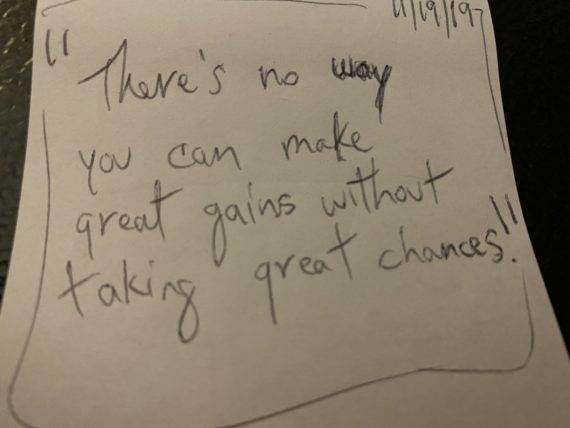 11/19/197
"There's no way
you can make
great gains without
taking great chances."